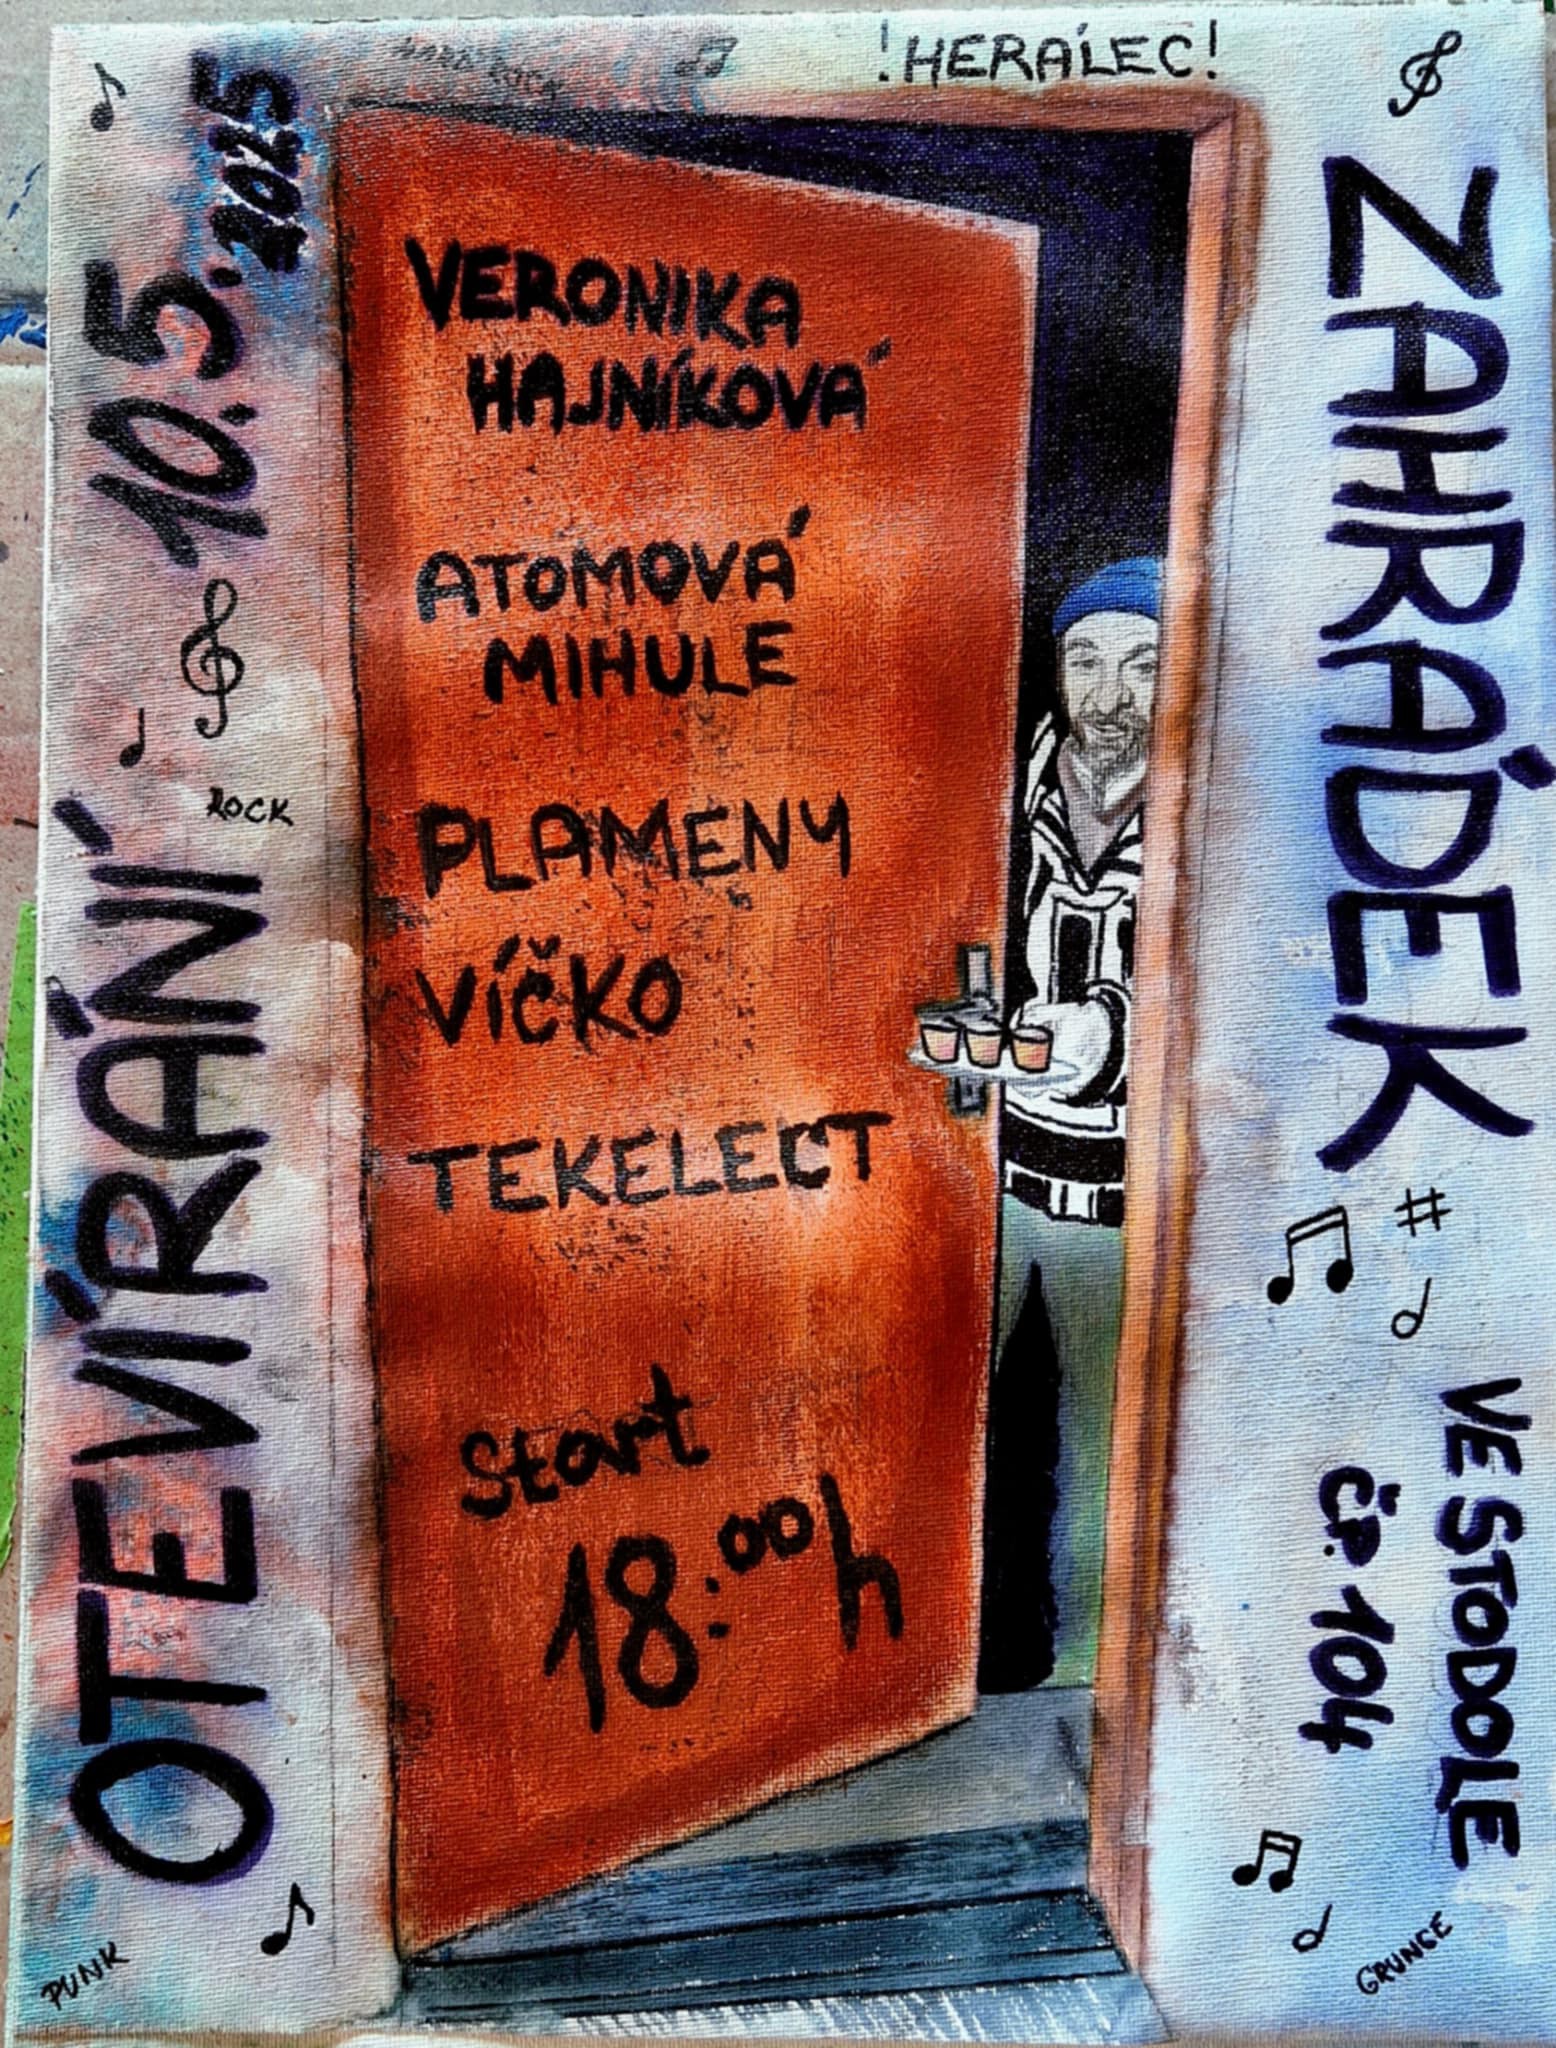 HARD ROCK
!HERÁLEC!
OTEVÍRÁNÍ 10.5. 2025
ZAHRÁDEK
VERONIKA
HAJNÍKOVÁ
ATOMOVÁ
MIHULE
PLAMENY
VÍČKO
TEKELECT
Start
18:00h
ROCK
VE STODOLE
ČP. 104
PUNK
GRUNGE